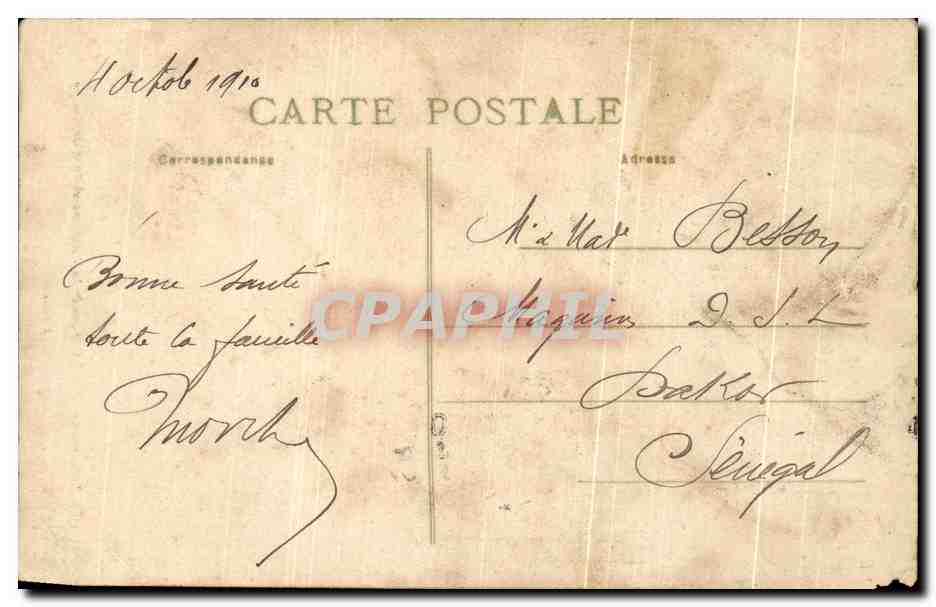 4 octob 1910
CARTE POSTALE
Correspondance
Adresse
Bonne santé
toute la famille
M. & Mad. Besson
Magasin D. S. L
Dakar
Sénégal
CPAPHIL